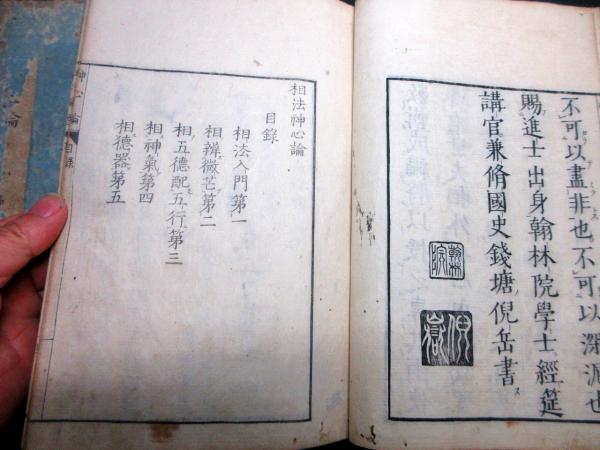 不可以盡非也不可以深泥也
賜進士出身翰林院學士經筵
講官兼脩國史錢塘倪岳書
翰林院
倪岳
相法神心論
目錄
相法入門第一
相辨微芒第二
相五德配五行第三
相神氣第四
相德器第五
神心論
目錄
論